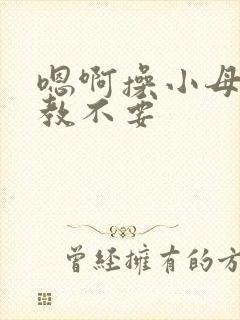 嗯啊操小母
教不要
曾經擁有的方